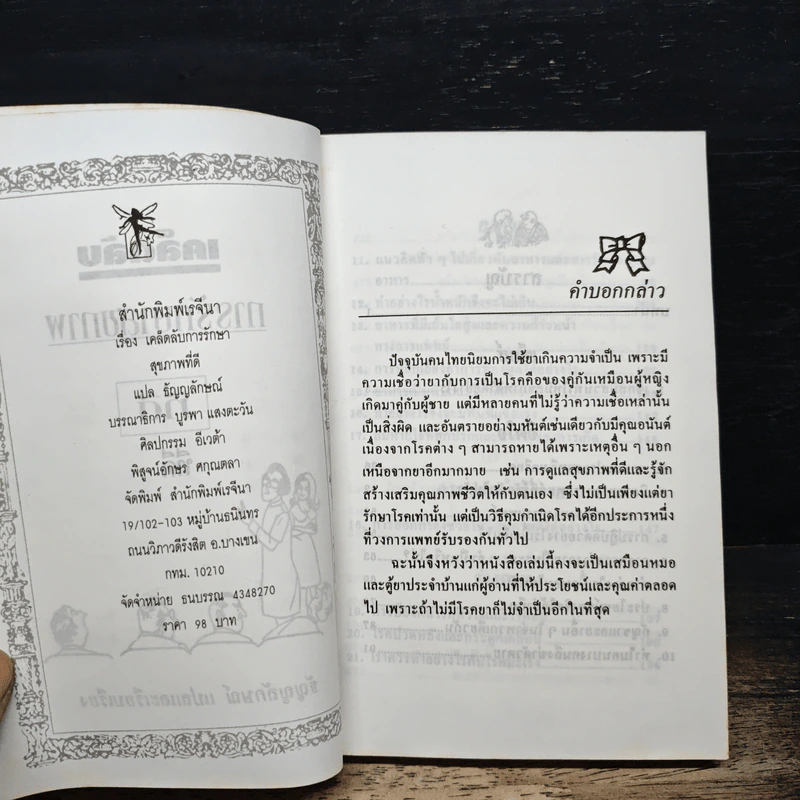 สำนักพิมพ์เรจีนา
เรื่อง เคล็ดลับการรักษา
สุขภาพที่ดี
แปล ธัญญลักษณ์
บรรณาธิการ บูรพา แสงตะวัน
ศิลปกรรม อีเวต้า
พิสูจน์อักษร ศกุณตลา
จัดพิมพ์ สำนักพิมพ์เรจีนา
19/102-103 หมู่บ้านธนินทร
ถนนวิภาวดีรังสิต อ.บางเขน
กทม. 10210
จัดจำหน่าย ธนบรรณ 4348270
ราคา 98 บาท
คำบอกกล่าว
ปัจจุบันคนไทยนิยมการใช้ยาเกินความจำเป็น เพราะมี
ความเชื่อว่ายากับการเป็นโรคคือของคู่กันเหมือนผู้หญิง
เกิดมาคู่กับผู้ชาย แต่มีหลายคนที่ไม่รู้ว่าความเชื่อเหล่านั้น
เป็นสิ่งผิด และอันตรายอย่างมหันต์เช่นเดียวกับมีคุณอนันต์
เนื่องจากโรคต่าง ๆ สามารถหายได้เพราะเหตุอื่น ๆ นอก
เหนือจากยาอีกมากมาย เช่น การดูแลสุขภาพที่ดีและรู้จัก
สร้างเสริมคุณภาพชีวิตให้กับตนเอง ซึ่งไม่เป็นเพียงแต่ยา
รักษาโรคเท่านั้น แต่เป็นวิธีคุมกำเนิดโรคได้อีกประการหนึ่ง
ที่วงการแพทย์รับรองกันทั่วไป
ฉะนั้นจึงหวังว่าหนังสือเล่มนี้คงจะเป็นเสมือนหมอ
และตู้ยาประจำบ้านแก่ผู้อ่านที่ให้ประโยชน์และคุณค่าตลอด
ไป เพราะถ้าไม่มีโรคยาก็ไม่จำเป็นอีกในที่สุด